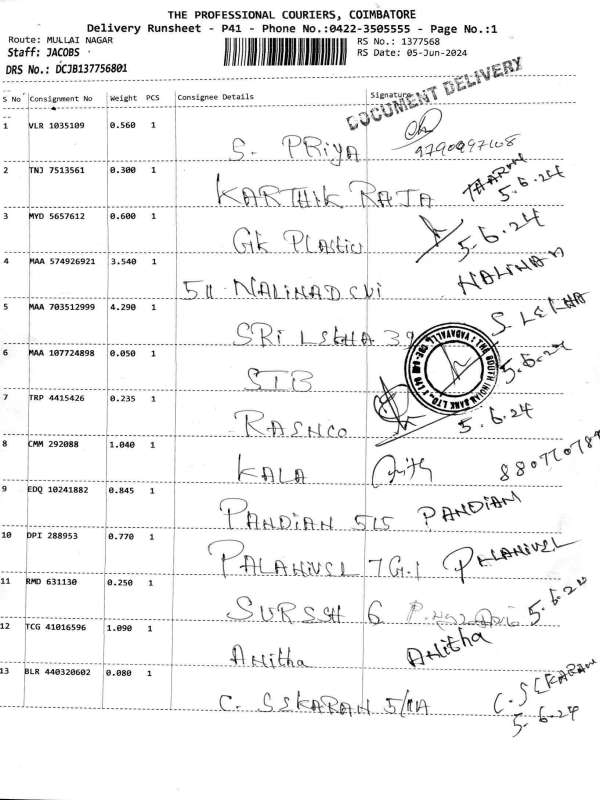 THE PROFESSIONAL COURIERS, COIMBATORE
Delivery Runsheet - P41 - Phone No.:0422-3505555 - Page No.:1
Route: MULLAI NAGAR RS No.: 1377568
Staff: JACOBS RS Date: 05-Jun-2024
DRS No.: DCJB137756801
DOCUMENT DELIVERY
S No Consignment No Weight PCS Consignee Details Signature
1 VLR 1035109 0.560 1
S. PRIYA
2 TNJ 7513561 0.300 1
KARTHIK RAJA THARUN 5.6.24
3 MYD 5657612 0.600 1
GK PLASTIC 5.6.24
4 MAA 574926921 3.540 1
NALINADEVI NALINAD
5 MAA 703512999 4.290 1
SRI LEKHA 39 S. LEKHA
6 MAA 107724898 0.050 1
SIB 5.6.24
THE SOUTH INDIAN BANK LTD.,
7 TRP 4415426 0.235 1
RASNCO 5.6.24
8 CMM 292088 1.040 1
KALA
9 EDQ 10241882 0.845 1
PANDIAN 515 PANDIAN
10 DPI 288953 0.770 1
PALANIVEL 7G.1 PALANIVEL
11 RMD 631130 0.250 1
SURESH 6 5.6.24
12 TCG 41016596 1.090 1
Anitha Anitha
13 BLR 440320602 0.080 1
C. SEKARAN 5/11A C. SEKARAN
5.6.24